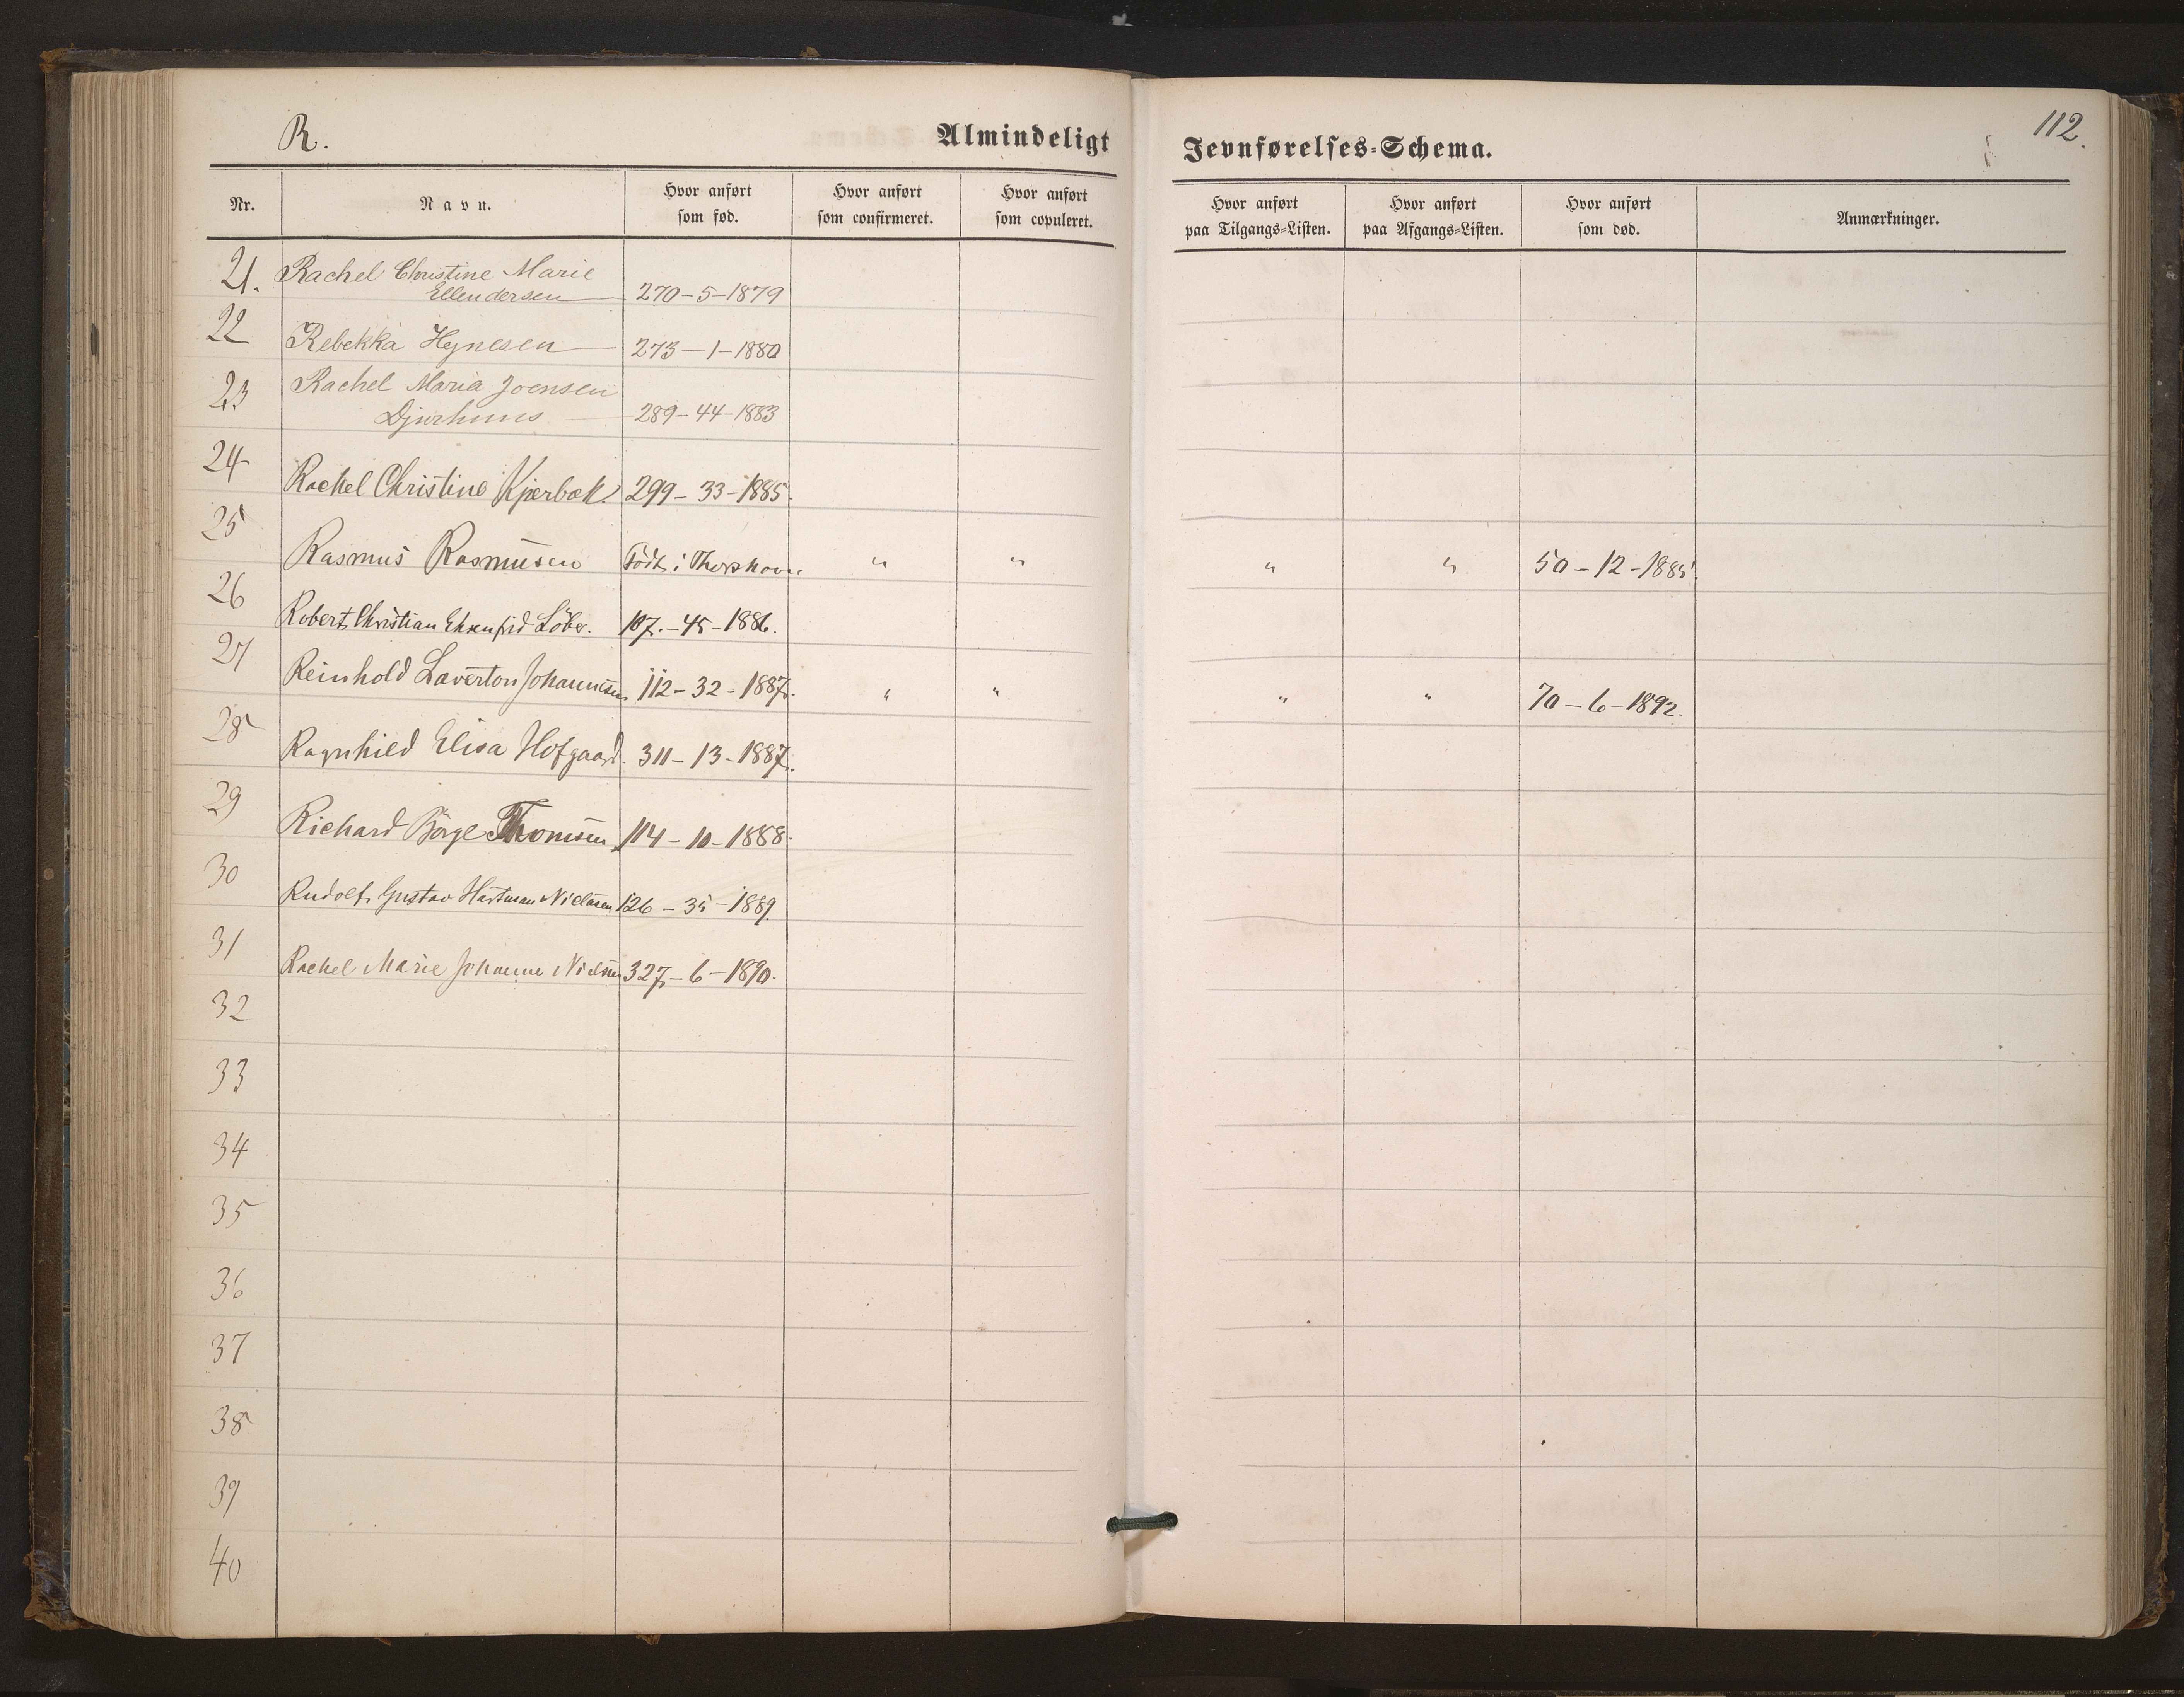 R.
Almindeligt
Jevnførelses-Schema.
112.
Nr.
Navn.
Hvor anført som fød.
Hvor anført som confirmeret.
Hvor anført som copuleret.
Hvor anført paa Tilgangs-Listen.
Hvor anført paa Afgangs-Listen.
Hvor anført som død.
Anmærkninger.
21. Rachel Christine Marie
Ellendersen 270-5-1879
22 Rebekka Hejnesen 273-1-1880
23 Rachel Maria Joensen
Djurhuus 289-44-1883
24 Rachel Christine Kjærbæk 299-33-1885.
25 Rasmus Rasmusen Födt i Thorshavn " " " " 50-12-1885.
26 Robert Christian Ehrenfrid Löbv. 107.-45-1886.
27 Reinhold Laverton Johannesen 112-32-1887. " " " " 70-6-1892.
28 Ragnhild Elisa Hofgaard. 311-13-1887.
29 Richard Börge Thomsen 114-10-1888.
30 Rudolf Gustav Hartman Nielasen 126-35-1889.
31 Rachel Marie Johanne Nielsen 327-6-1890.
32
33
34
35
36
37
38
39
40